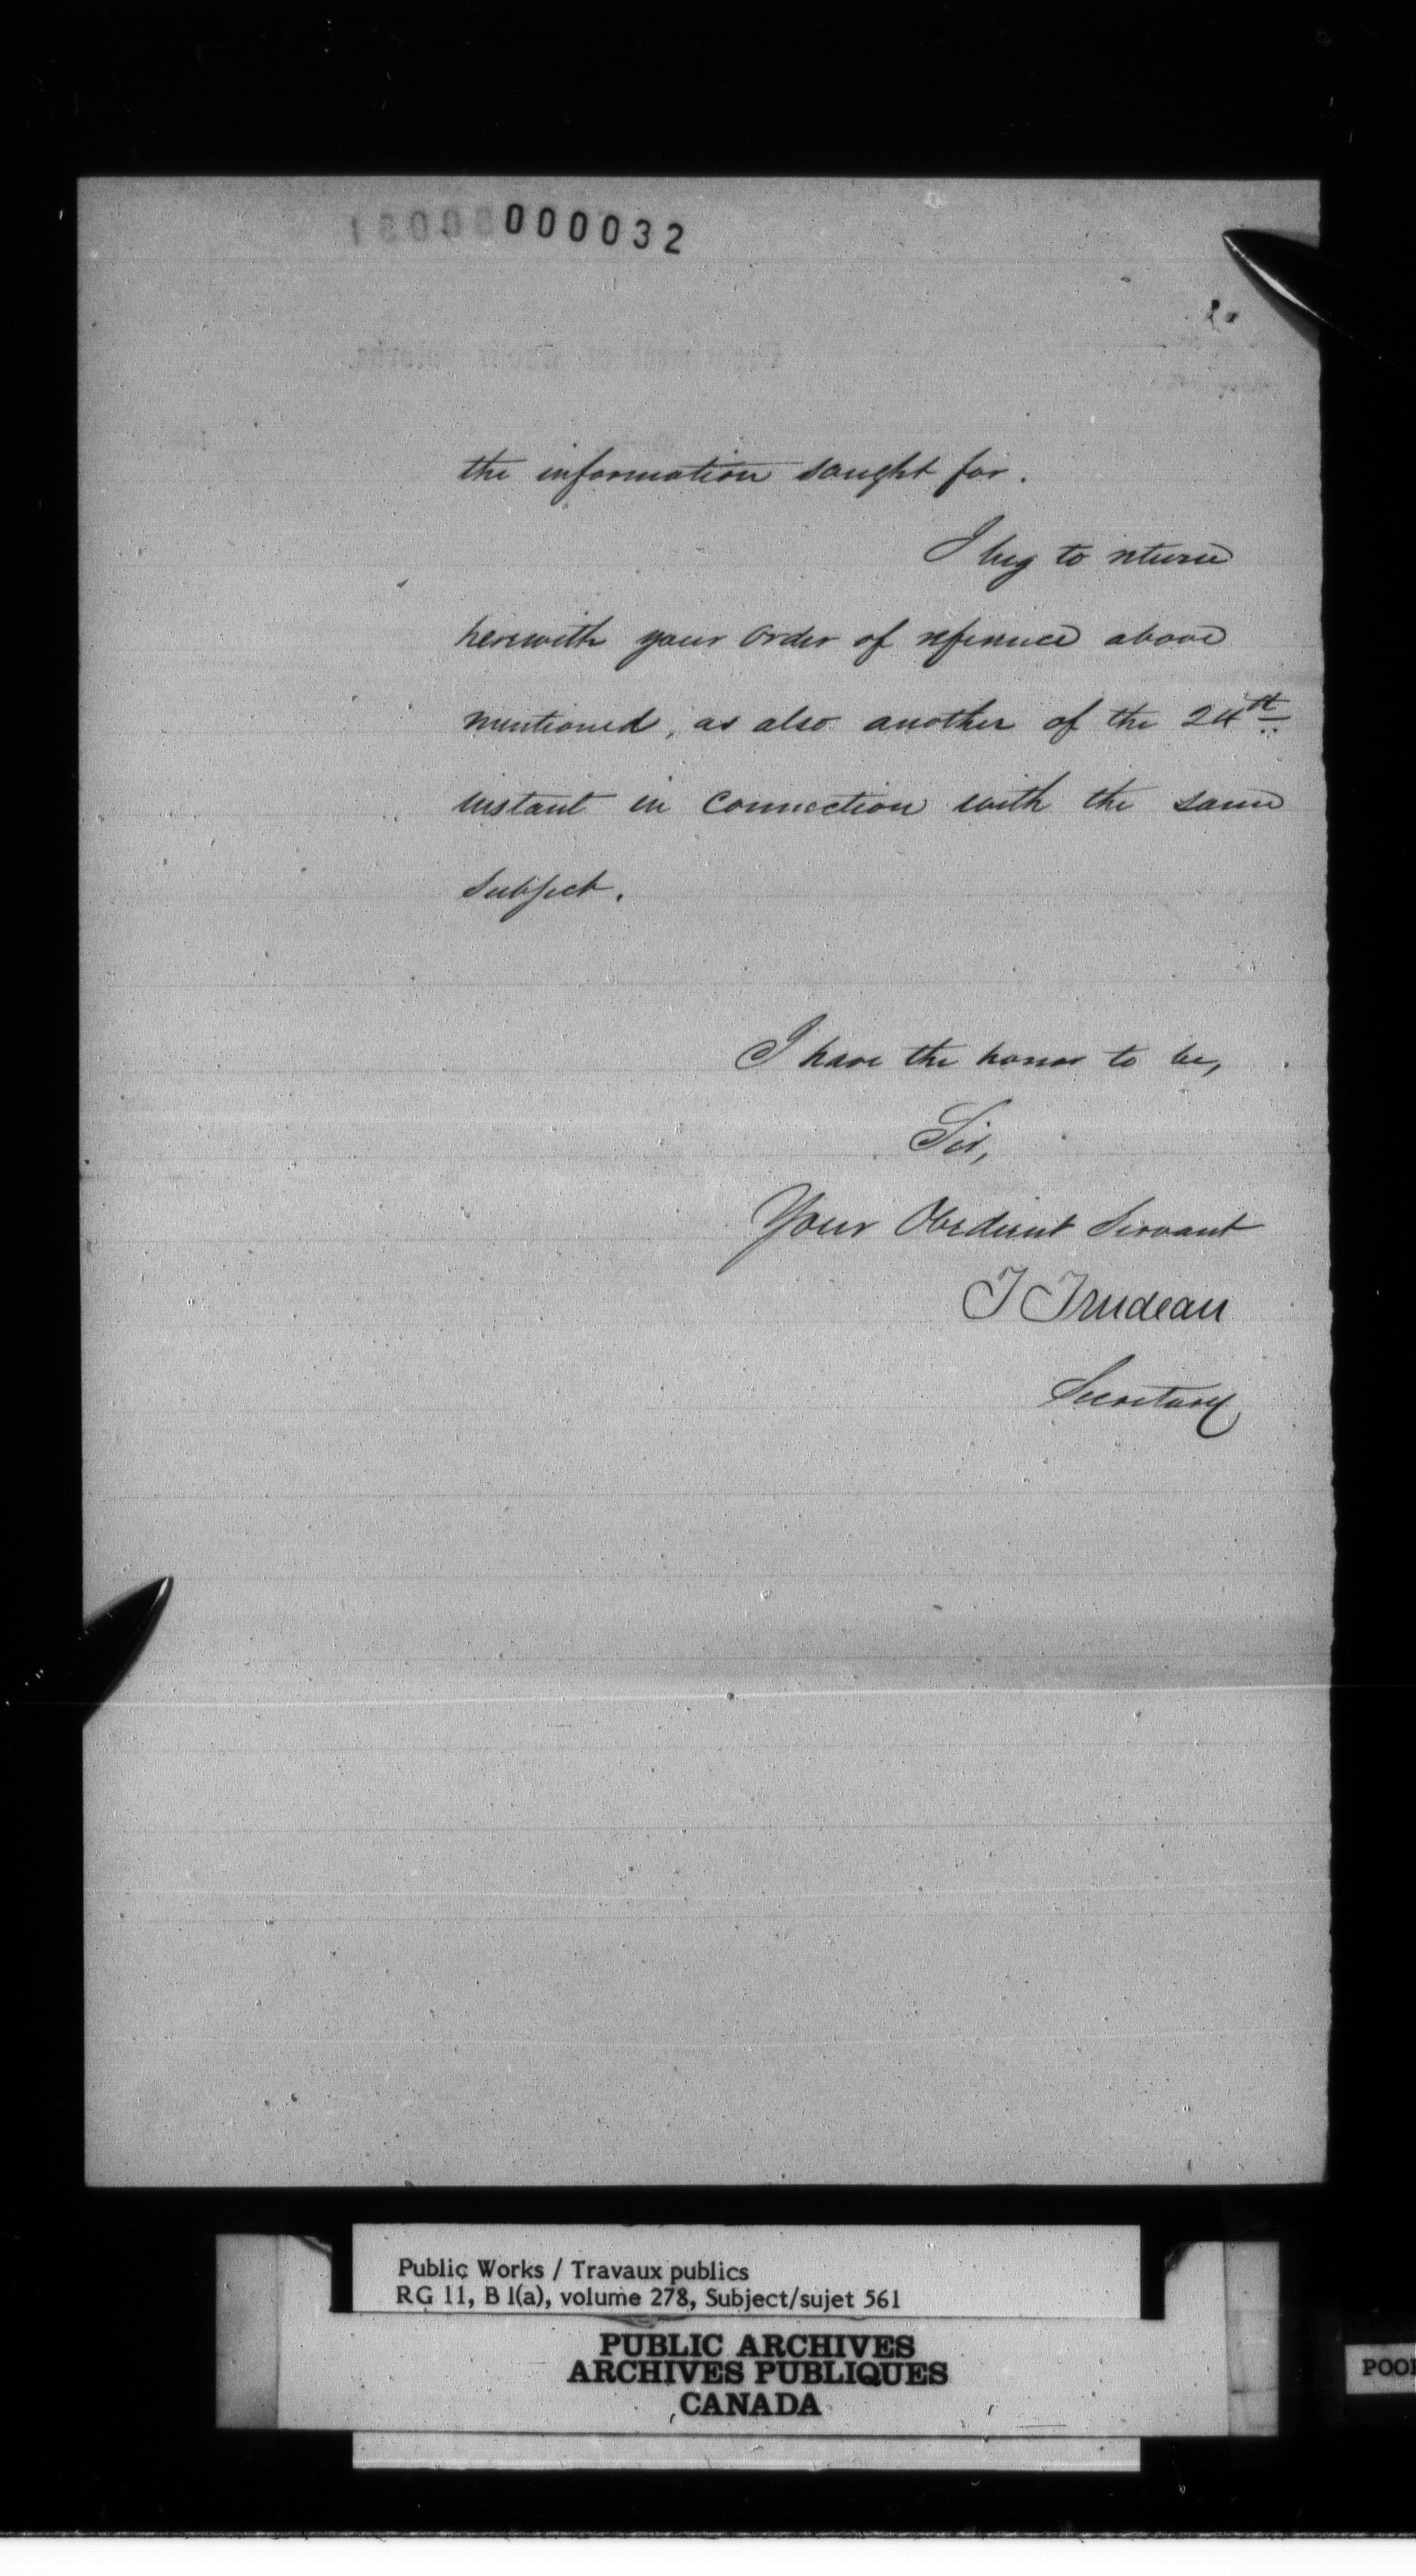 000032
the information sought for.
I beg to return
herewith your order of reference above
mentioned, as also another of the 24th
instant in connection with the same
subject.
I have the honor to be,
Sir,
Your Obedient Servant
T Trudeau
Secretary
Public Works / Travaux publics
RG 11, B 1(a), volume 278, Subject/sujet 561
PUBLIC ARCHIVES
ARCHIVES PUBLIQUES
CANADA